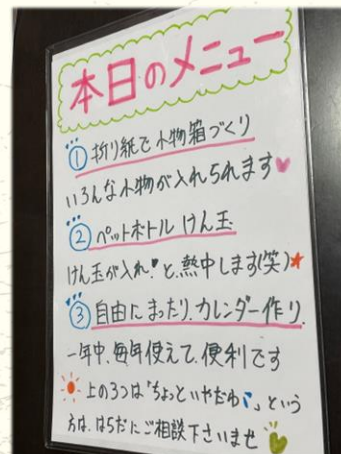 本日のメニュー
① 折り紙で小物箱づくり
いろんな小物が入れられます
② ペットボトルけん玉
けん玉が入れ!と、熱中します(笑)
③ 自由にまったり、カレンダー作り
一年中、毎年使えて、便利です
上の3つは「ちょっといやだわ」という
方は、はらだにご相談下さいませ